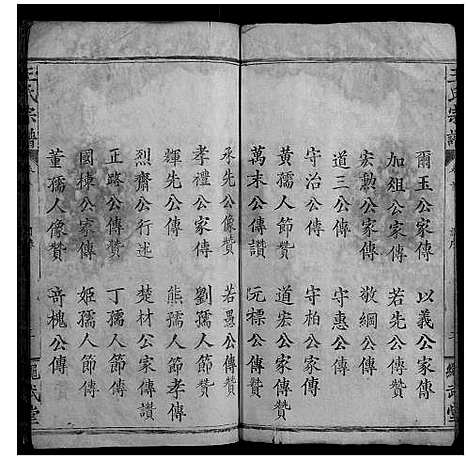 王氏宗譜
爾玉公家傳 以義公家傳
加俎公家傳 若先公傳
宏勲公家傳 敬綱公傳
道三公傳 守惠公傳
守治公傳 守柏公家傳
黃孺人節贊 道宏公家傳
萬末公傳讚 沅標公傳
承先公像贊 若愚公傳
孝禮公家傳 劉孺人節贊
輝先公傳 熊孺人節孝傳
烈齋公行述 楚材公家傳讃
正路公傳 丁孺人節傳
國棟公傳 姬孺人節傳
董孺人像贊 奇槐公傳
王氏宗譜
繩武堂